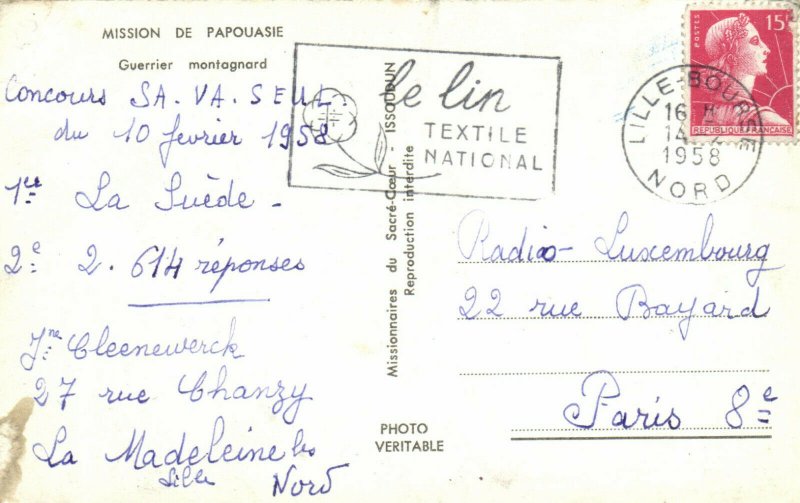 MISSION DE PAPOUASIE
Guerrier montagnard
Concours SA. VA. SEUL.
du 10 fevrier 1958
1re La Suède -
2e 2.614 réponses
Jne Cleenewerck
27 rue Chanzy
La Madeleine les
Lille Nord
le lin
TEXTILE
NATIONAL
Missionnaires du Sacré-Cœur - ISSOUDUN
Reproduction interdite
PHOTO
VERITABLE
POSTES
15F
REPUBLIQUE FRANÇAISE
LILLE-BOURSE
16 H
14 - 2
1958
NORD
Radio-Luxembourg
22 rue Bayard
Paris 8e